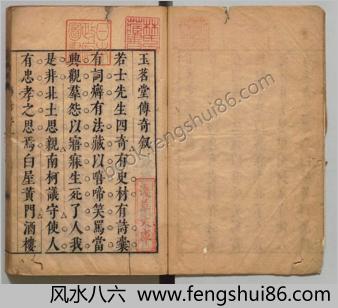 玉茗堂傳奇敘
若士先生四奇有史材有詩
有詞癖有法藏以啼笑罵當
觀羣怨以寤寐生死了人我
是非北土思親南柯議守使人
有忠孝之思焉白星黃門酒樓
www.fengshui86.com
风水八六 www.fengshui86.com